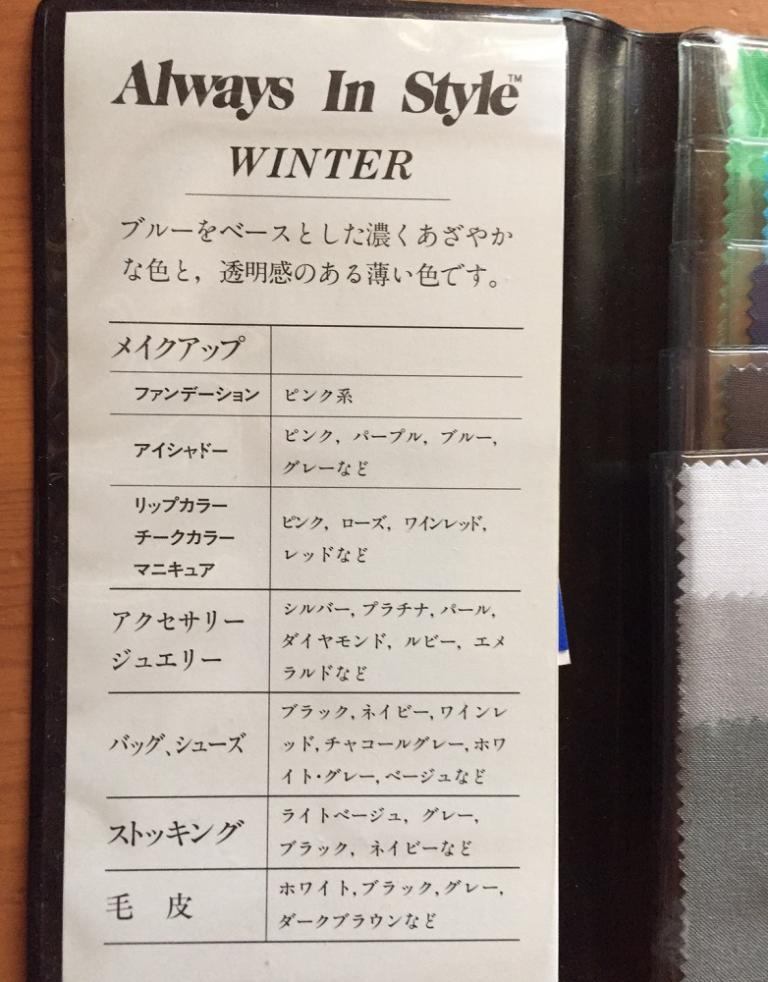 Always In Style™
WINTER
ブルーをベースとした濃くあざやか
な色と，透明感のある薄い色です。
メイクアップ
ファンデーション
ピンク系
アイシャドー
ピンク，パープル，ブルー，
グレーなど
リップカラー
チークカラー
マニキュア
ピンク，ローズ，ワインレッド，
レッドなど
アクセサリー
ジュエリー
シルバー，プラチナ，パール，
ダイヤモンド，ルビー，エメ
ラルドなど
バッグ、シューズ
ブラック，ネイビー，ワインレ
ッド，チャコールグレー，ホワ
イト・グレー，ベージュなど
ストッキング
ライトベージュ，グレー，
ブラック，ネイビーなど
毛　皮
ホワイト，ブラック，グレー，
ダークブラウンなど